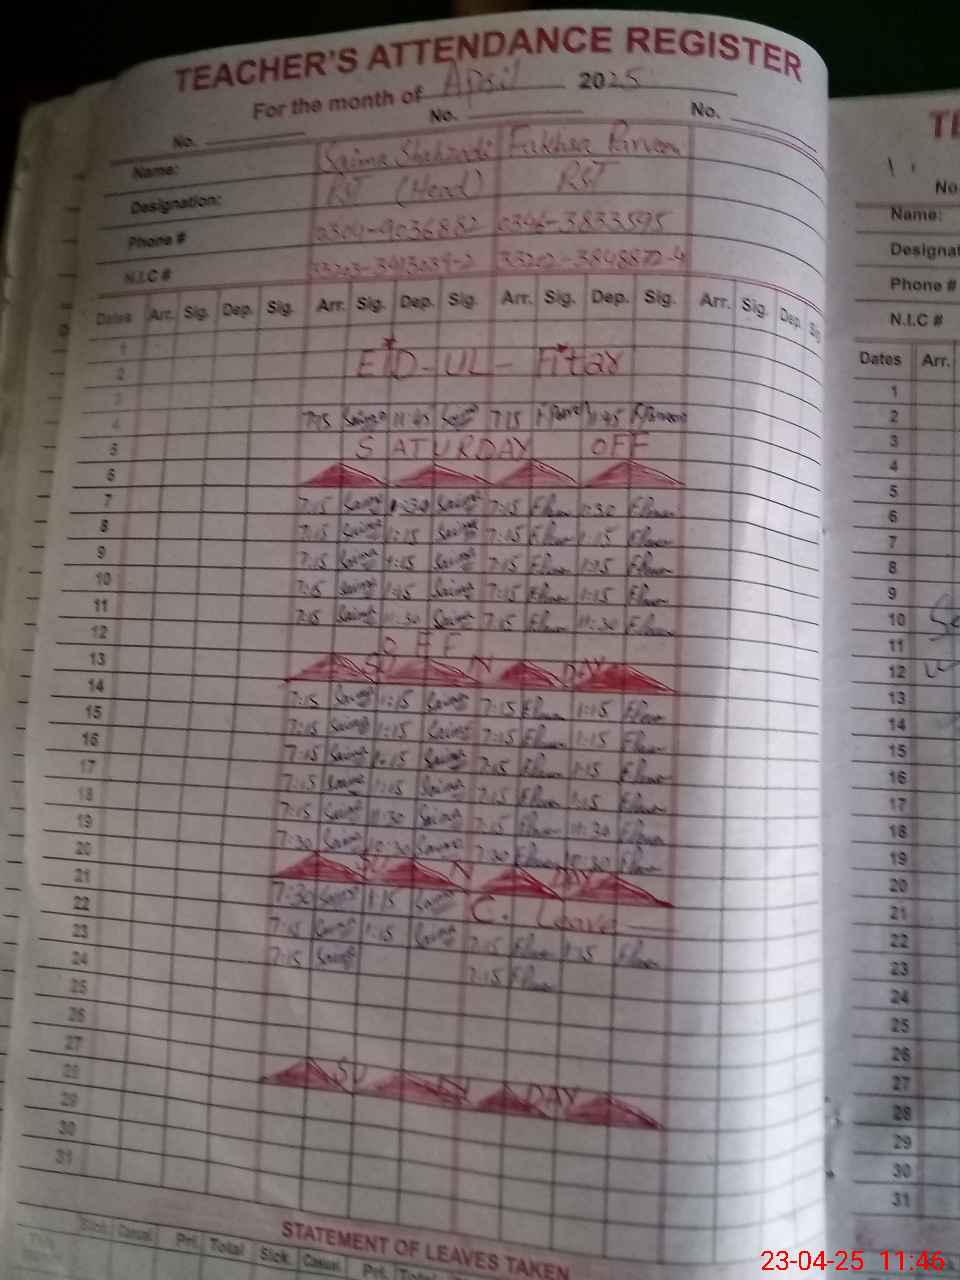 TEACHER'S ATTENDANCE REGISTER
For the month of April 2025
No. No. No.
Name: Saima Shahzadi Fakhra Parveen
Designation: RST (Head) RST
Phone # 0304-9036882 0346-3833595
N.I.C # 33203-3413039-2 33202-3848872-4
Dates Arr. Sig. Dep. Sig. Arr. Sig. Dep. Sig. Arr. Sig. Dep. Sig. Arr. Sig. Dep.
1
2 EID-UL-Fitar
3
4 7:15 Saima 11:45 Saima 7:15 11:45 F.Parveen
5 SATURDAY OFF
6
7 7:15 Saima 1:30 Saima 7:15 1:30
8 7:15 Saima 1:15 Saima 7:15 1:15
9 7:15 Saima 1:15 Saima 7:15 1:15
10 7:15 Saima 1:15 Saima 7:15 1:15
11 7:15 Saima 11:30 Saima 7:15 11:30
12 OFF
13 SUNDAY
14 7:15 Saima 1:15 Saima 7:15 1:15
15 7:15 Saima 1:15 Saima 7:15 1:15
16 7:15 Saima 1:15 Saima 7:15 1:15
17 7:15 Saima 1:15 Saima 7:15 1:15
18 7:15 Saima 11:30 Saima 7:15 11:30
19 7:30 Saima 10:30 Saima 7:30 10:30
20 SUNDAY
21 7:30 Saima 1:15 Saima C. Leave
22 7:15 Saima 1:15 Saima 7:15 1:15
23 7:15 Saima 7:15
24
25
26
27 SUNDAY
28
29
30
31
STATEMENT OF LEAVES TAKEN
Sick Casual Pri. Total Sick Casual Pri. Total
No
Name:
Designat
Phone #
N.I.C #
Dates Arr.
1
2
3
4
5
6
7
8
9
10
11
12
13
14
15
16
17
18
19
20
21
22
23
24
25
26
27
28
29
30
31
23-04-25 11:46